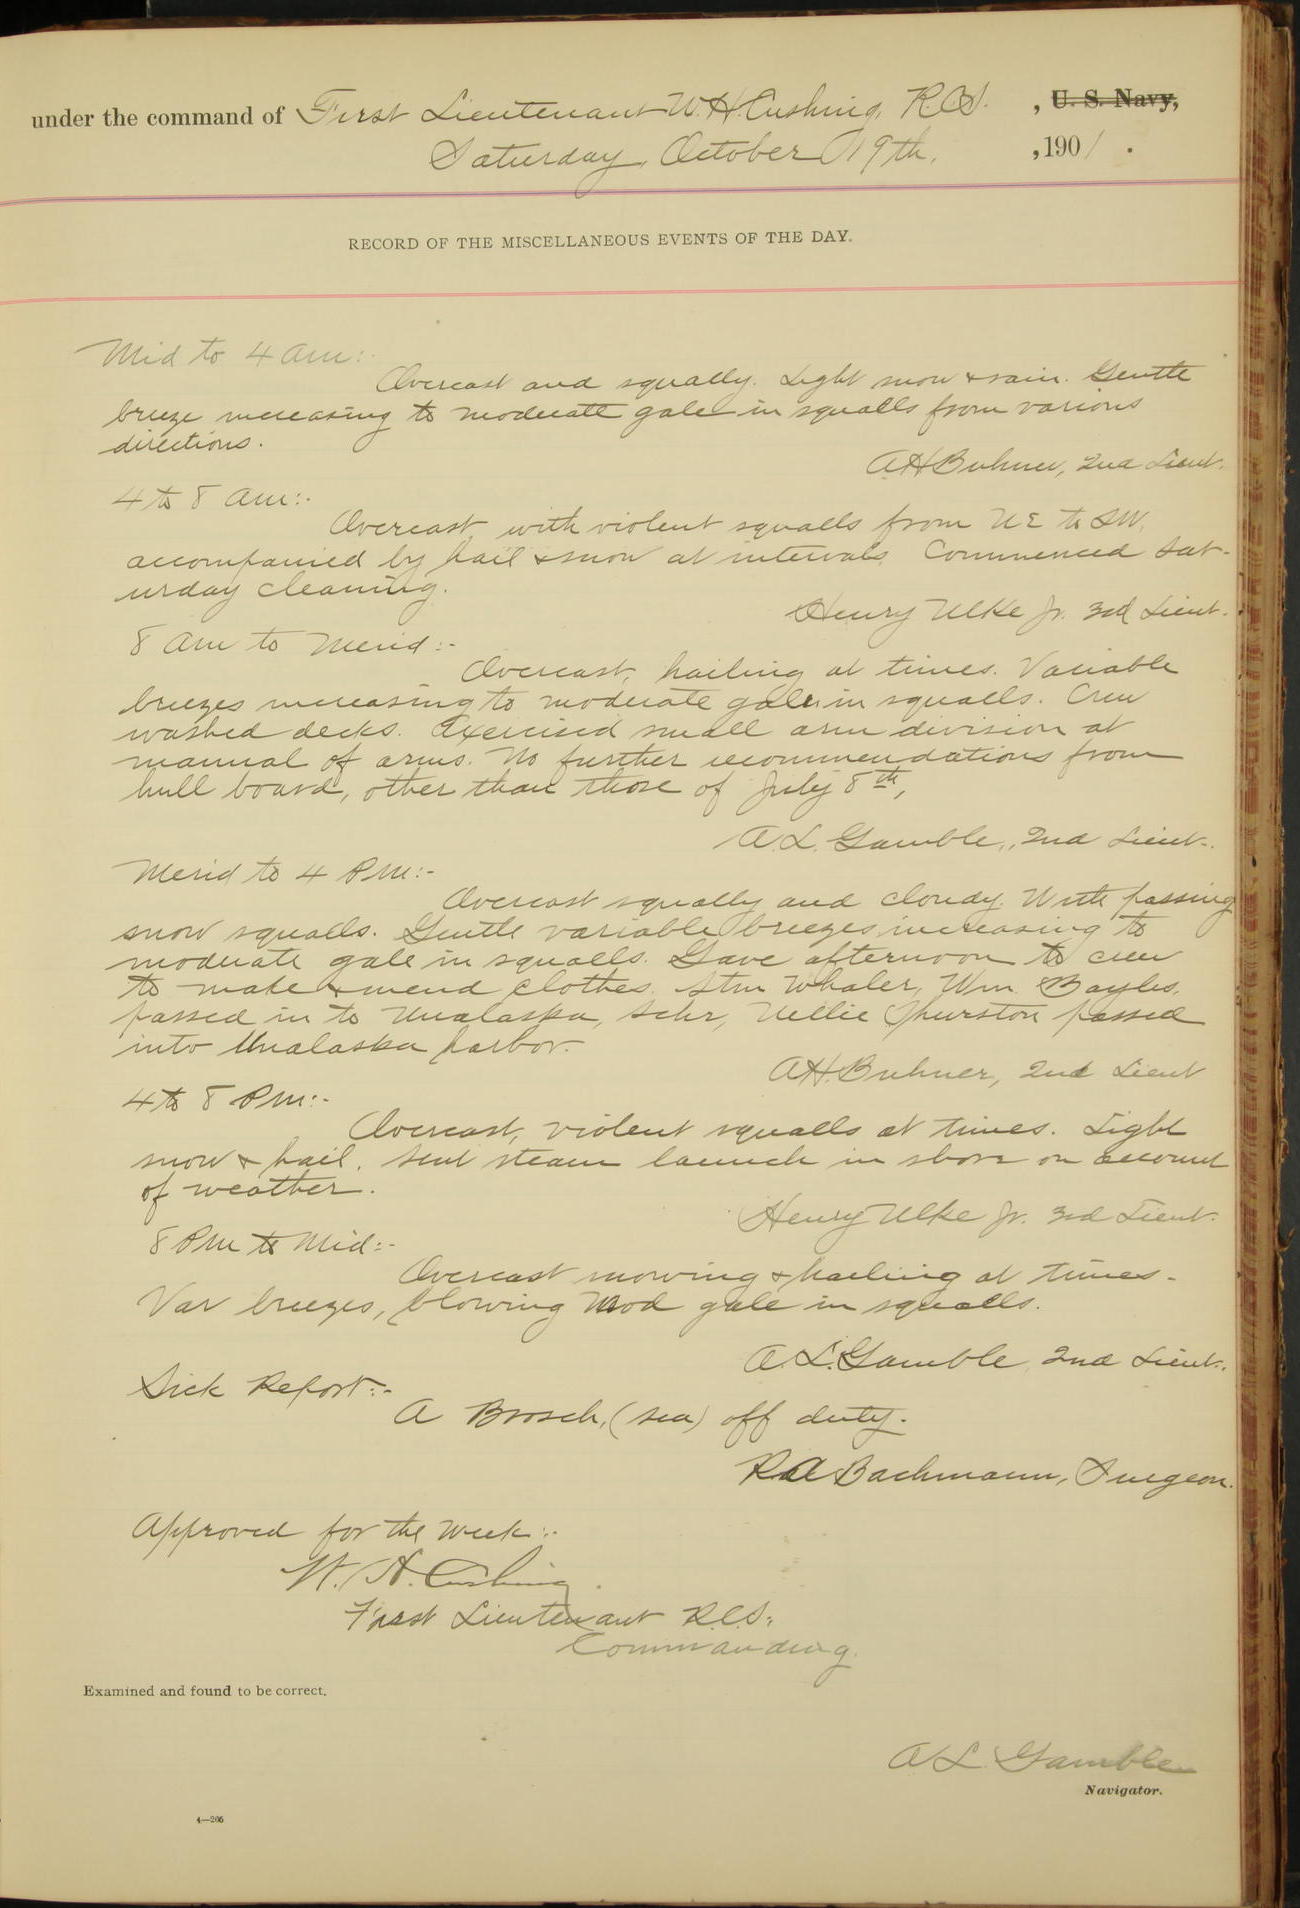 under the command of First Lieutenant W.H. Cushing, R.C.S. , U. S. Navy,
Saturday, October 19th, , 1901 .
RECORD OF THE MISCELLANEOUS EVENTS OF THE DAY.
Mid to 4 am:-
Overcast and squally. Light snow & rain. Gentle
breeze increasing to moderate gale in squalls from various
directions.
A.H. Buhner, 2nd Lieut.
4 to 8 am:-
Overcast with violent squalls from NE to SW,
accompanied by hail & snow at intervals. Commenced Sat-
urday cleaning.
Henry Ulke Jr. 3rd Lieut.
8 am to Merid:-
Overcast, hailing at times. Variable
breezes increasing to moderate gale in squalls. Crew
washed decks. Exercised small arm division at
manual of arms. No further recommendations from
hull board, other than those of July 8th,
A.L. Gamble, 2nd Lieut.
Merid to 4 PM:-
Overcast squally and cloudy. With passing
snow squalls. Gentle variable breezes increasing to
moderate gale in squalls. Gave afternoon to crew
to make & mend clothes. Stm Whaler, Wm. Bayles,
passed in to Unalaska, Schr, Nellie Thurston passed
into Unalaska harbor.
A.H. Buhner, 2nd Lieut
4 to 8 PM:-
Overcast, violent squalls at times. Light
snow & hail. Sent steam launch in shore on account
of weather.
Henry Ulke Jr. 3rd Lieut.
8 PM to Mid:-
Overcast snowing & hailing at times.
Var breezes, blowing Mod gale in squalls.
A.L. Gamble, 2nd Lieut.
Sick Report:-
A Brosch, (sea) off duty.
R.A. Bachmann, Surgeon.
Approved for the week:-
W. H. Cushing
First Lieutenant R.C.S.
Commanding.
Examined and found to be correct.
A L. Gamble
Navigator.
4—205